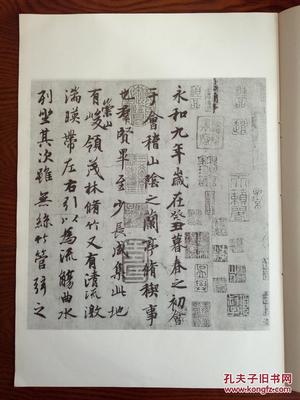 永和九年歲在癸丑暮春之初會
于會稽山陰之蘭亭脩稧事
也羣賢畢至少長咸集此地
有崇山峻領茂林脩竹又有清流激
湍暎帶左右引以為流觴曲水
列坐其次雖無絲竹管弦之
孔夫子旧书网